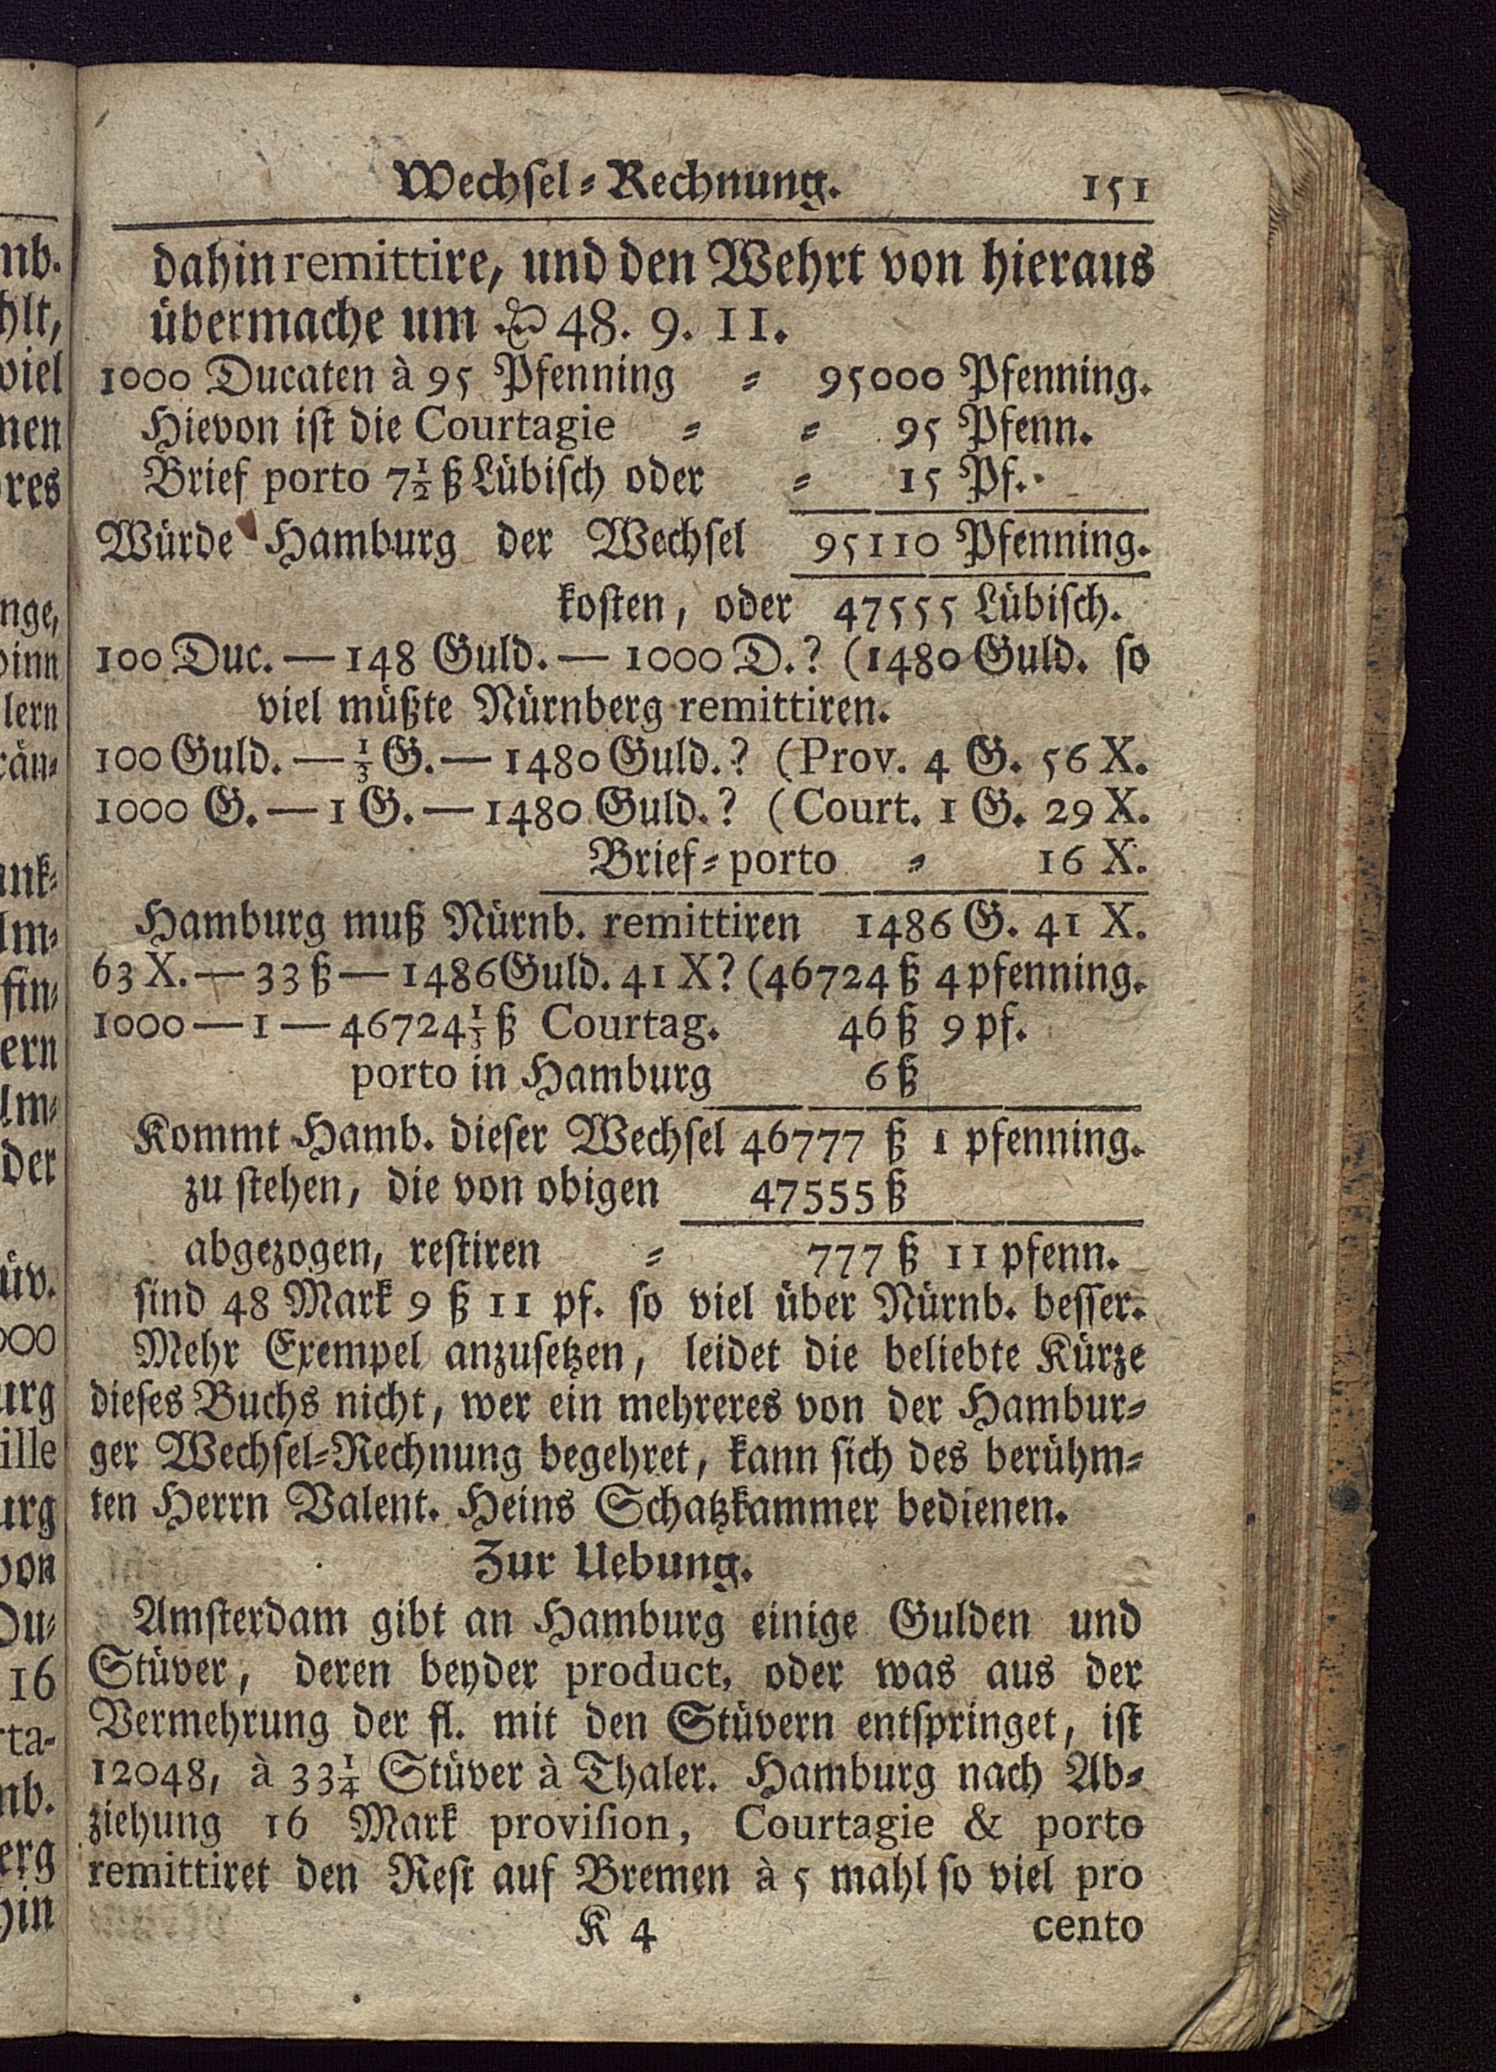 Wechsel-Rechnung. 151
dahin remittire, und den Wehrt von hieraus
übermache um 48. 9. 11.
1000 Ducaten à 95 Pfenning = 95000 Pfenning.
Hievon ist die Courtagie = = 95 Pfenn.
Brief porto 7½ ß Lübisch oder = 15 Pf.
Würde Hamburg der Wechsel 95110 Pfenning.
kosten, oder 47555 Lübisch.
100 Duc. — 148 Guld. — 1000 D.? (1480 Guld. so
viel müßte Nürnberg remittiren.
100 Guld. — ⅓ G. — 1480 Guld.? (Prov. 4 G. 56 X.
1000 G. — 1 G. — 1480 Guld.? (Court. 1 G. 29 X.
Brief-porto = 16 X.
Hamburg muß Nürnb. remittiren 1486 G. 41 X.
63 X. — 33 ß — 1486 Guld. 41 X? (46724 ß 4 pfenning.
1000 — 1 — 46724⅓ ß Courtag. 46 ß 9 pf.
porto in Hamburg 6 ß
Kommt Hamb. dieser Wechsel 46777 ß 1 pfenning.
zu stehen, die von obigen 47555 ß
abgezogen, restiren = 777 ß 11 pfenn.
sind 48 Mark 9 ß 11 pf. so viel über Nürnb. besser.
Mehr Exempel anzusetzen, leidet die beliebte Kürze
dieses Buchs nicht, wer ein mehreres von der Hambur-
ger Wechsel-Rechnung begehret, kann sich des berühm-
ten Herrn Valent. Heins Schatzkammer bedienen.
Zur Uebung.
Amsterdam gibt an Hamburg einige Gulden und
Stüver, deren beyder product, oder was aus der
Vermehrung der fl. mit den Stüvern entspringet, ist
12048, à 33¼ Stüver à Thaler. Hamburg nach Ab-
ziehung 16 Mark provision, Courtagie & porto
remittiret den Rest auf Bremen à 5 mahl so viel pro
K 4 cento